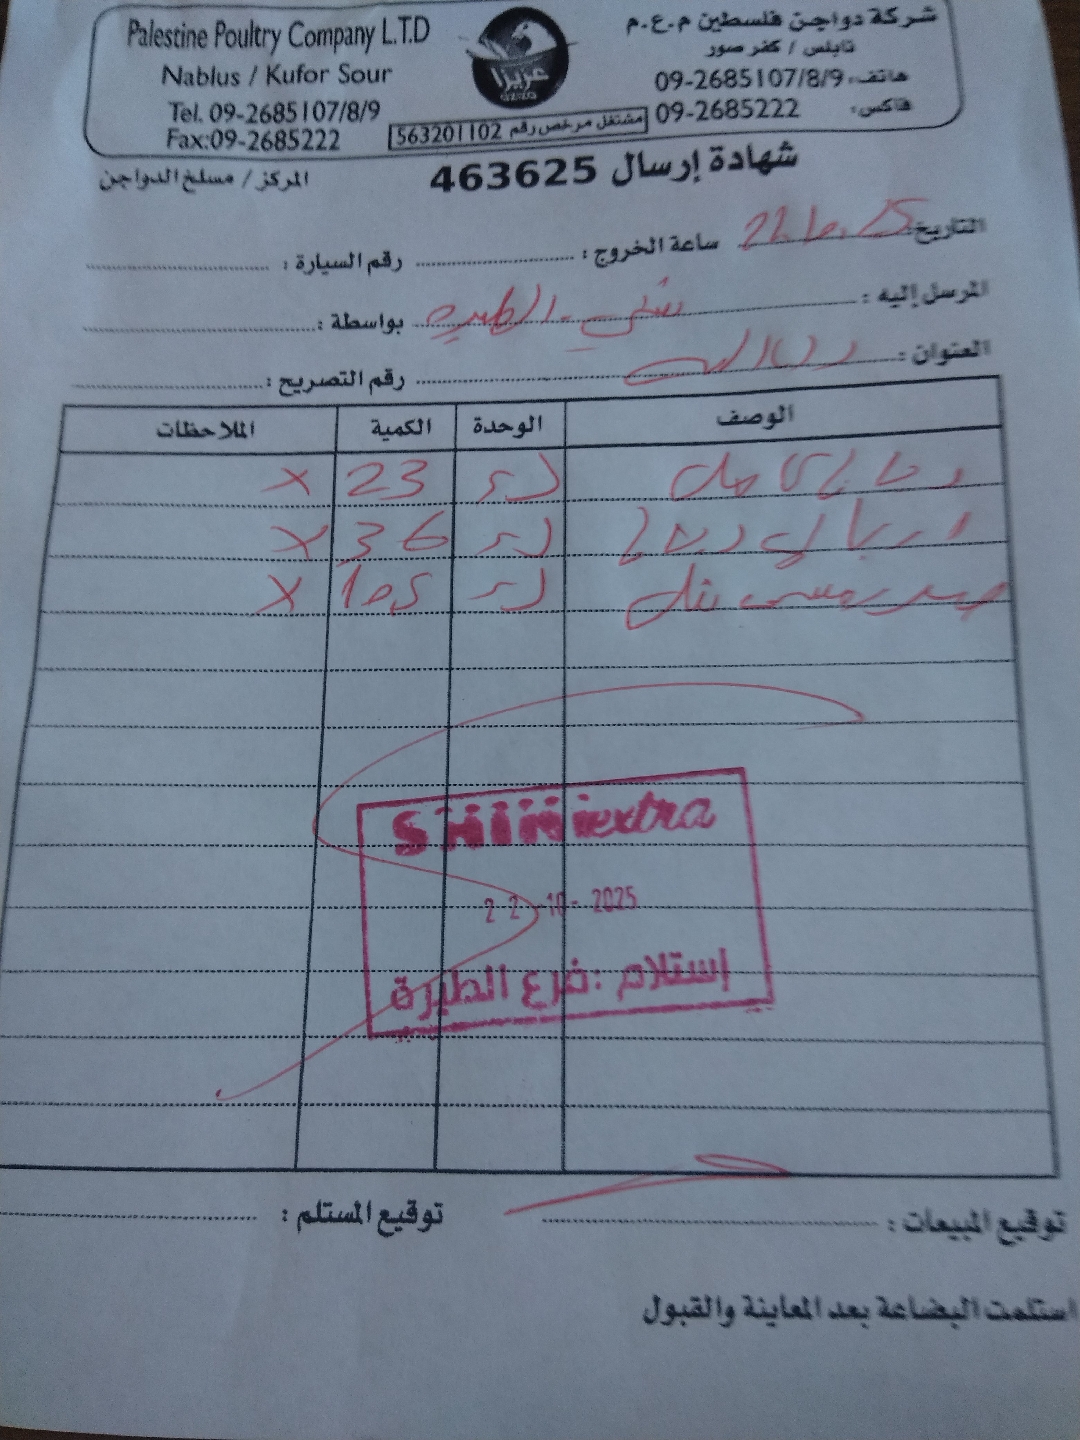 Palestine Poultry Company L.T.D
Nablus / Kufor Sour
Tel. 09-2685107/8/9
Fax:09-2685222
عزيزا
شركة دواجن فلسطين م.ع.م
نابلس / كفر صور
هاتف: 09-2685107/8/9
فاكس: 09-2685222
مشتغل مرخص رقم 563201102
شهادة إرسال 463625
المركز / مسلخ الدواجن
التاريخ: 22.10.25 ساعة الخروج: رقم السيارة:
المرسل إليه: شني - الطيره بواسطة:
العنوان: رام الله رقم التصريح:
الوصف الوحدة الكمية الملاحظات
23 x
36 x
105 x
SHINI extra
22-10-2025
إستلام: فرع الطيرة
توقيع المبيعات: توقيع المستلم:
استلمت البضاعة بعد المعاينة والقبول